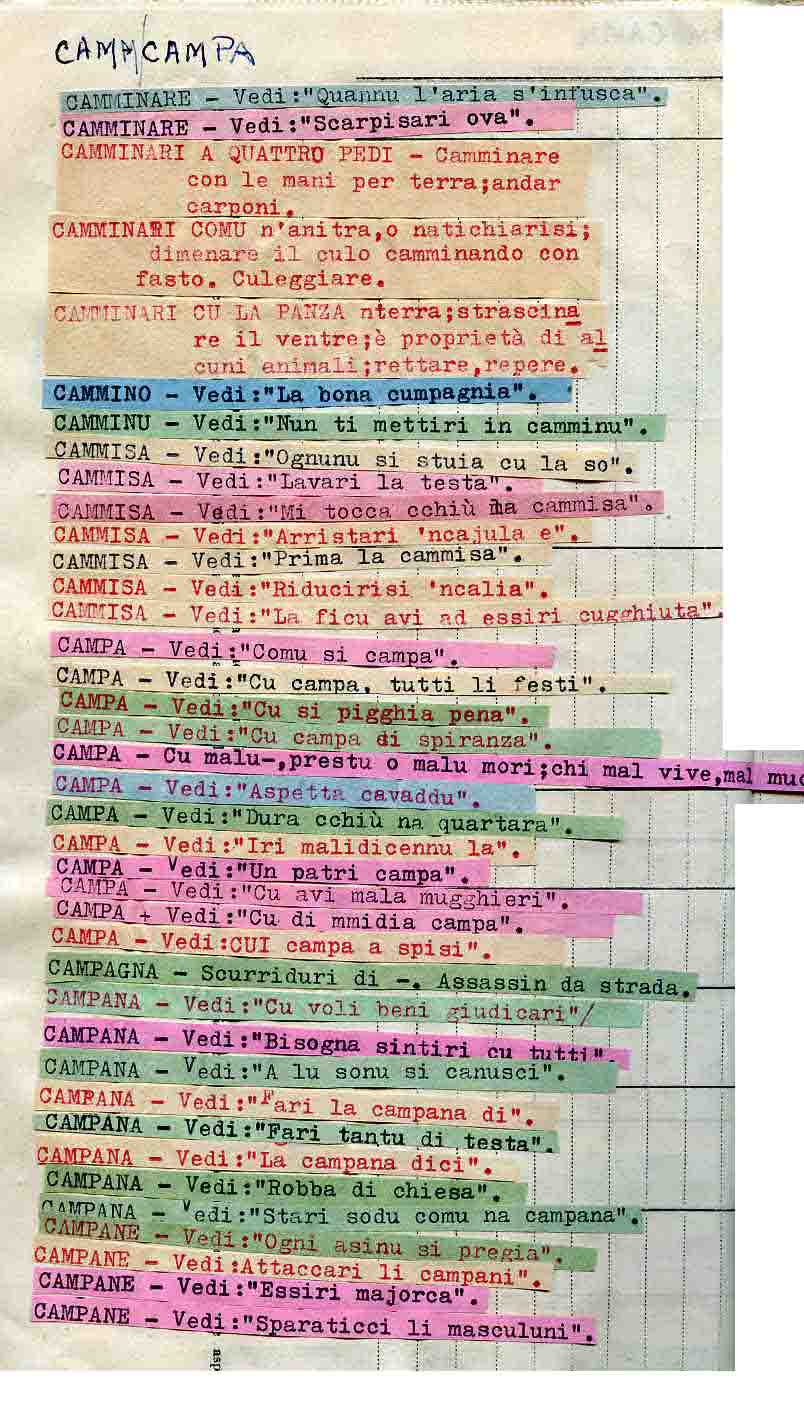 CAMM/CAMPA
CAMMINARE - Vedi:"Quannu l'aria s'infusca".
CAMMINARE - Vedi:"Scarpisari ova".
CAMMINARI A QUATTRO PEDI - Camminare
con le mani per terra;andar
carponi.
CAMMINARI COMU n'anitra,o natichiarisi;
dimenare il culo camminando con
fasto. Culeggiare.
CAMMINARI CU LA PANZA nterra;strascina
re il ventre;è proprietà di al
cuni animali;rettare,repere.
CAMMINO - Vedi:"La bona cumpagnia".
CAMMINU - Vedi:"Nun ti mettiri in camminu".
CAMMISA - Vedi:"Ognunu si stuia cu la so".
CAMMISA - Vedi:"Lavari la testa".
CAMMISA - Vedi:"Mi tocca cchiù ma cammisa".
CAMMISA - Vedi:"Arristari 'ncajula e".
CAMMISA - Vedi:"Prima la cammisa".
CAMMISA - Vedi:"Riducirisi 'ncalia".
CAMMISA - Vedi:"La ficu avi ad essiri cugghiuta".
CAMPA - Vedi:"Comu si campa".
CAMPA - Vedi:"Cu campa, tutti li festi".
CAMPA - Vedi:"Cu si pigghia pena".
CAMPA - Vedi:"Cu campa di spiranza".
CAMPA - Cu malu-,prestu o malu mori;chi mal vive,mal muo
CAMPA - Vedi:"Aspetta cavaddu".
CAMPA - Vedi:"Dura cchiù na quartara".
CAMPA - Vedi:"Iri malidicennu la".
CAMPA - Vedi:"Un patri campa".
CAMPA - Vedi:"Cu avi mala mugghieri".
CAMPA + Vedi:"Cu di mmidia campa".
CAMPA - Vedi:CUI campa a spisi".
CAMPAGNA - Scurriduri di -. Assassin da strada.
CAMPANA - Vedi:"Cu voli beni giudicari"/
CAMPANA - Vedi:"Bisogna sintiri cu tutti".
CAMPANA - Vedi:"A lu sonu si canusci".
CAMPANA - Vedi:"Fari la campana di".
CAMPANA - Vedi:"Fari tantu di testa".
CAMPANA - Vedi:"La campana dici".
CAMPANA - Vedi:"Robba di chiesa".
CAMPANA - Vedi:"Stari sodu comu na campana".
CAMPANE - Vedi:"Ogni asinu si pregia".
CAMPANE - Vedi:Attaccari li campani".
CAMPANE - Vedi:"Essiri majorca".
CAMPANE - Vedi:"Sparaticci li masculuni".
asp